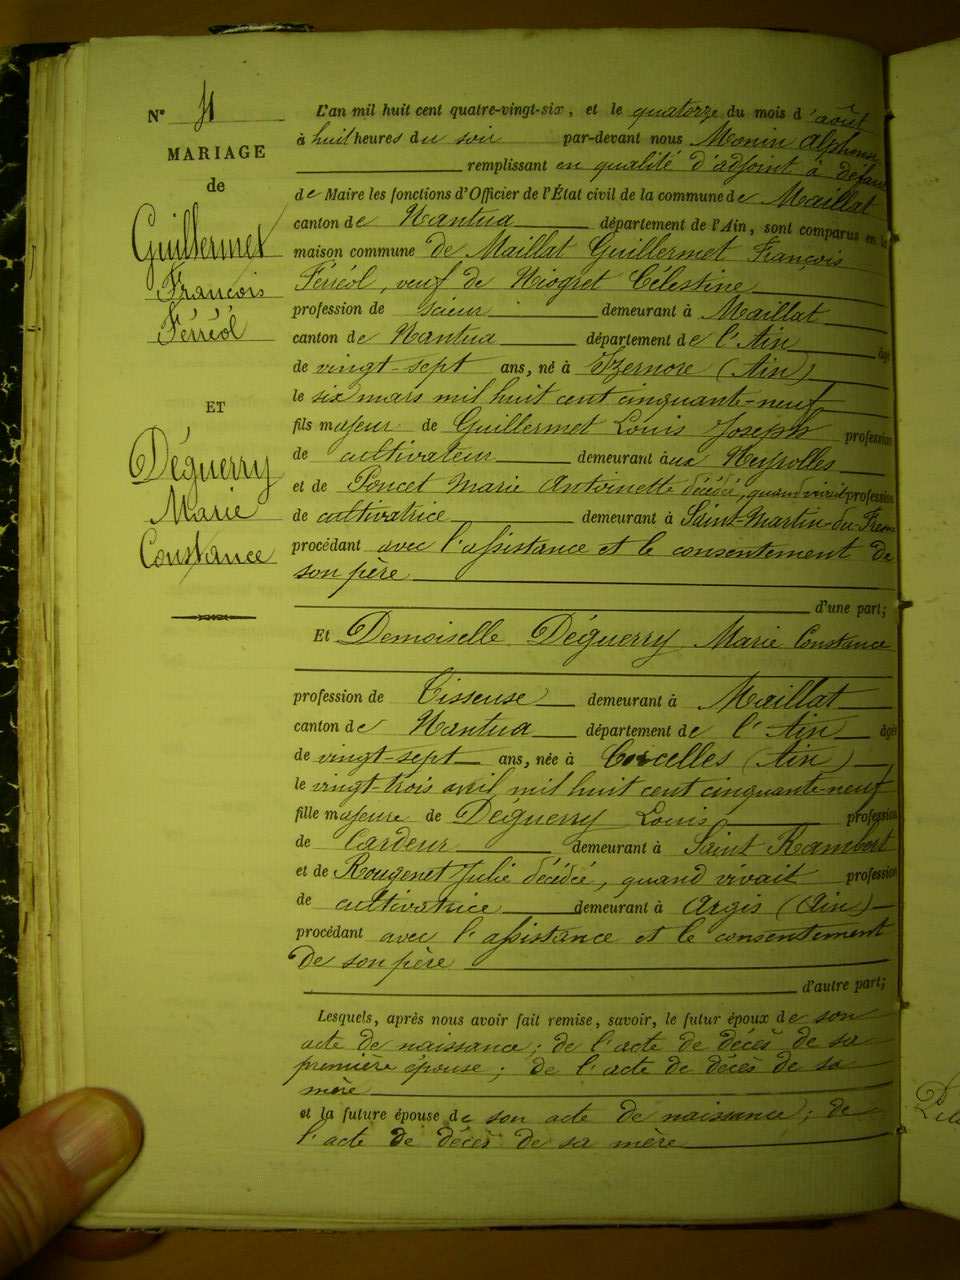 N° 4
MARIAGE
de
Guillermet
François
Férréol
ET
Déguerry
Marie
Constance
L'an mil huit cent quatre-vingt-six, et le quatorze du mois d'août
à huit heures du soir par-devant nous Monin Alphonse
remplissant en qualité d'adjoint à défaut
de Maire les fonctions d'Officier de l'État civil de la commune de Maillat
canton de Nantua département de l'Ain, sont comparus en la
maison commune de Maillat Guillermet François
Férréol, veuf de Niogret Célestine
profession de scieur demeurant à Maillat
canton de Nantua département de l'Ain âgé
de vingt-sept ans, né à Izernore (Ain)
le six mars mil huit cent cinquante-neuf
fils majeur de Guillermet Louis Joseph profession
de cultivateur demeurant aux Neyrolles
et de Poncet Marie Antoinette décédée, quand vivait profession
de cultivatrice demeurant à Saint-Martin-du-Fresne
procédant avec l'assistance et le consentement de
son père
d'une part;
Et Demoiselle Déguerry Marie Constance
profession de Tisseuse demeurant à Maillat
canton de Nantua département de l'Ain âgée
de vingt-sept ans, née à Corcelles (Ain)
le vingt-trois avril mil huit cent cinquante-neuf
fille majeure de Déguerry Louis profession
de Cardeur demeurant à Saint Rambert
et de Rougenet Julie décédée, quand vivait profession
de cultivatrice demeurant à Argis (Ain)
procédant avec l'assistance et le consentement
de son père
d'autre part;
Lesquels, après nous avoir fait remise, savoir, le futur époux de son
acte de naissance; de l'acte de décès de sa
première épouse; de l'acte de décès de sa
mère
et la future épouse de son acte de naissance; de
l'acte de décès de sa mère